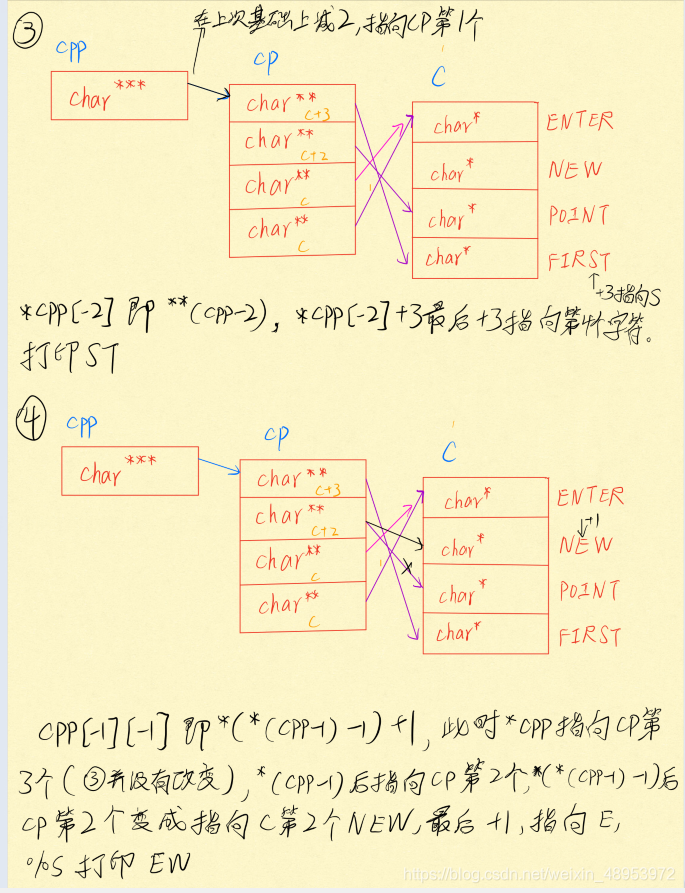 ③
在上次基础上减2,指向CP第1个
cpp
cp
C
char***
char**
c+3
char**
c+2
char**
c
char**
c
char* ENTER
char* NEW
char* POINT
char* FIRST
↑+3指向S
*cpp[-2] 即 **(cpp-2), *cpp[-2]+3最后+3指向第4个字符。
打印ST
④
cpp
cp
C
char***
char**
c+3
char**
c+2
char**
c
char**
c
char* ENTER
+1
char* NEW
char* POINT
char* FIRST
cpp[-1][-1] 即*(*(cpp-1)-1)+1, 此时*cpp指向cp第
3个(③并没有改变), *(cpp-1)后指向cp第2个,*(*(cpp-1)-1)后
cp第2个变成指向C第2个NEW,最后+1,指向E,
%s 打印 EW
https://blog.csdn.net/weixin_48953972